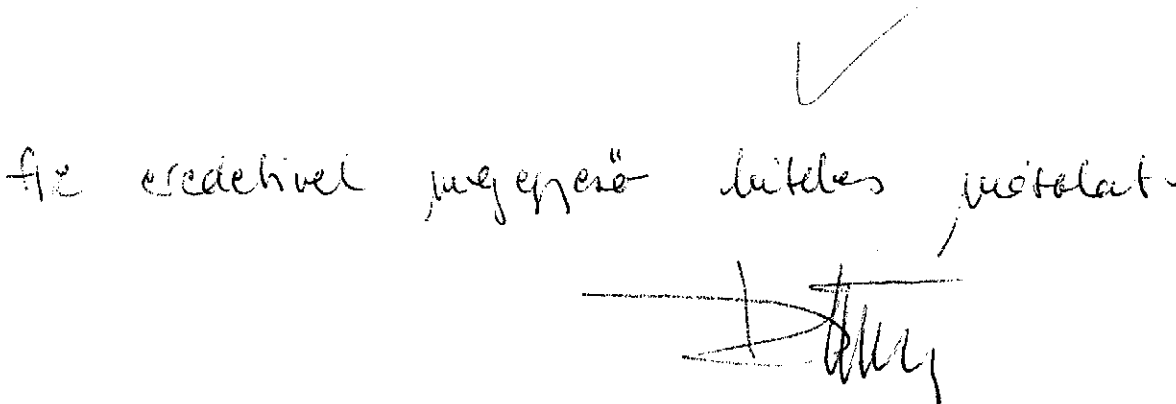 Az eredetivel megegyező hiteles másolat.